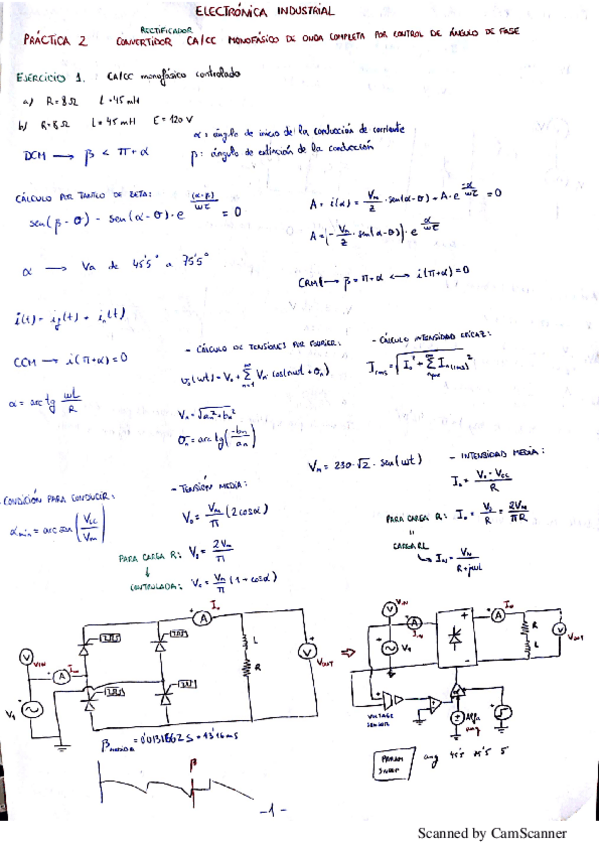 ELECTRÓNICA INDUSTRIAL
RECTIFICADOR
PRÁCTICA 2 CONVERTIDOR CA/CC MONOFÁSICO DE ONDA COMPLETA POR CONTROL DE ÁNGULO DE FASE
EJERCICIO 1. CA/CC monofásico controlado
a) R=8Ω L=45mH
b) R=8Ω L=45mH E=120V
α = ángulo de inicio de la conducción de corriente
DCM → β < π+α
β: ángulo de extinción de la conducción
CÁLCULO POR TANTEO DE BETA:
sen(β-θ) - sen(α-θ)·e^((α-β)/ωτ) = 0
A + i(α) = Vm/Z · sen(α-θ) + A·e^(-α/ωτ) = 0
A = (-Vm/Z · sen(α-θ))·e^(α/ωτ)
α → Va de 45'5° a 75'5°
β = π+α ↔ i(π+α) = 0
i(t) = if(t) + in(t)
CCM → i(π+α) = 0
α = arctg ωL/R
- CÁLCULO DE TENSIONES POR FOURIER:
v0(ωt) = V0 + Σ Vn cos(nωt + θn)
Vn = √(an² + bn²)
θn = arctg(-bn/an)
- CÁLCULO INTENSIDAD EFICAZ:
Vm = 230·√2 · sen(ωt)
- INTENSIDAD MEDIA:
I0 = (V0 - Vcc)/R
CONDICIÓN PARA CONDUCIR:
αmin = arcsen(Vcc/Vm)
- TENSIÓN MEDIA:
V0 = Vm/π (2cosα)
PARA CARGA R: I0 = V0/R = 2Vm/πR
CARGA RL
IN = VN/(R+jωL)
PARA CARGA R: V0 = 2Vm/π
CONTROLADA: V0 = Vm/π (1+cosα)
Io
A
L
R
V
VOUT
VIN
Iin
A
V1
VIN
V
A
Iin
V1
Io
A
R
L
V
VOUT
VOLTAGE SENSOR
Alfa
ang
β
PARAM SWEEP
ang 45'5 75'5 5
β
-1-
Scanned by CamScanner